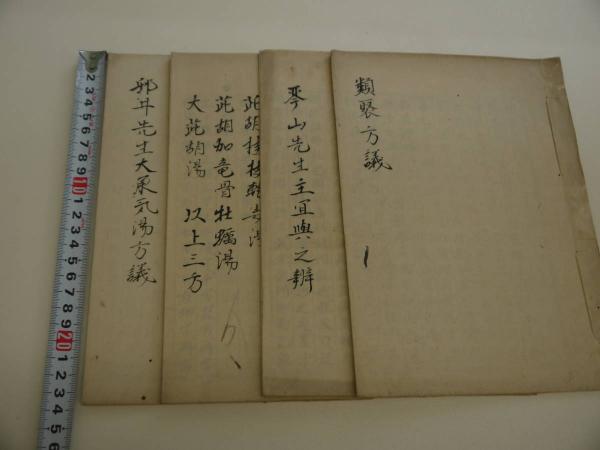 類聚方議
琴山先生主宜與之辨
茈胡桂枝乾姜湯
茈胡加竜骨牡蠣湯
大茈胡湯 以上三方
邨井先生大承気湯方議
1 2 3 4 5 6 7 8 9 10 1 2 3 4 5 6 7 8 9 20 1 2 3 4 5 6